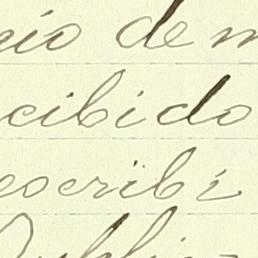 cio de m
cibido
escribí